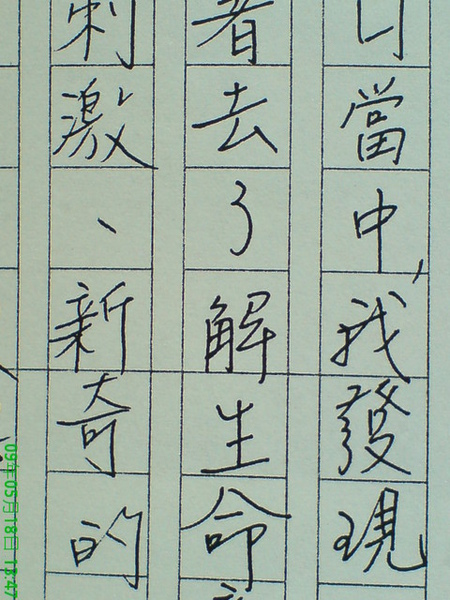 當中,我發現
去了解生命
刺激、新奇的
09年05月18日